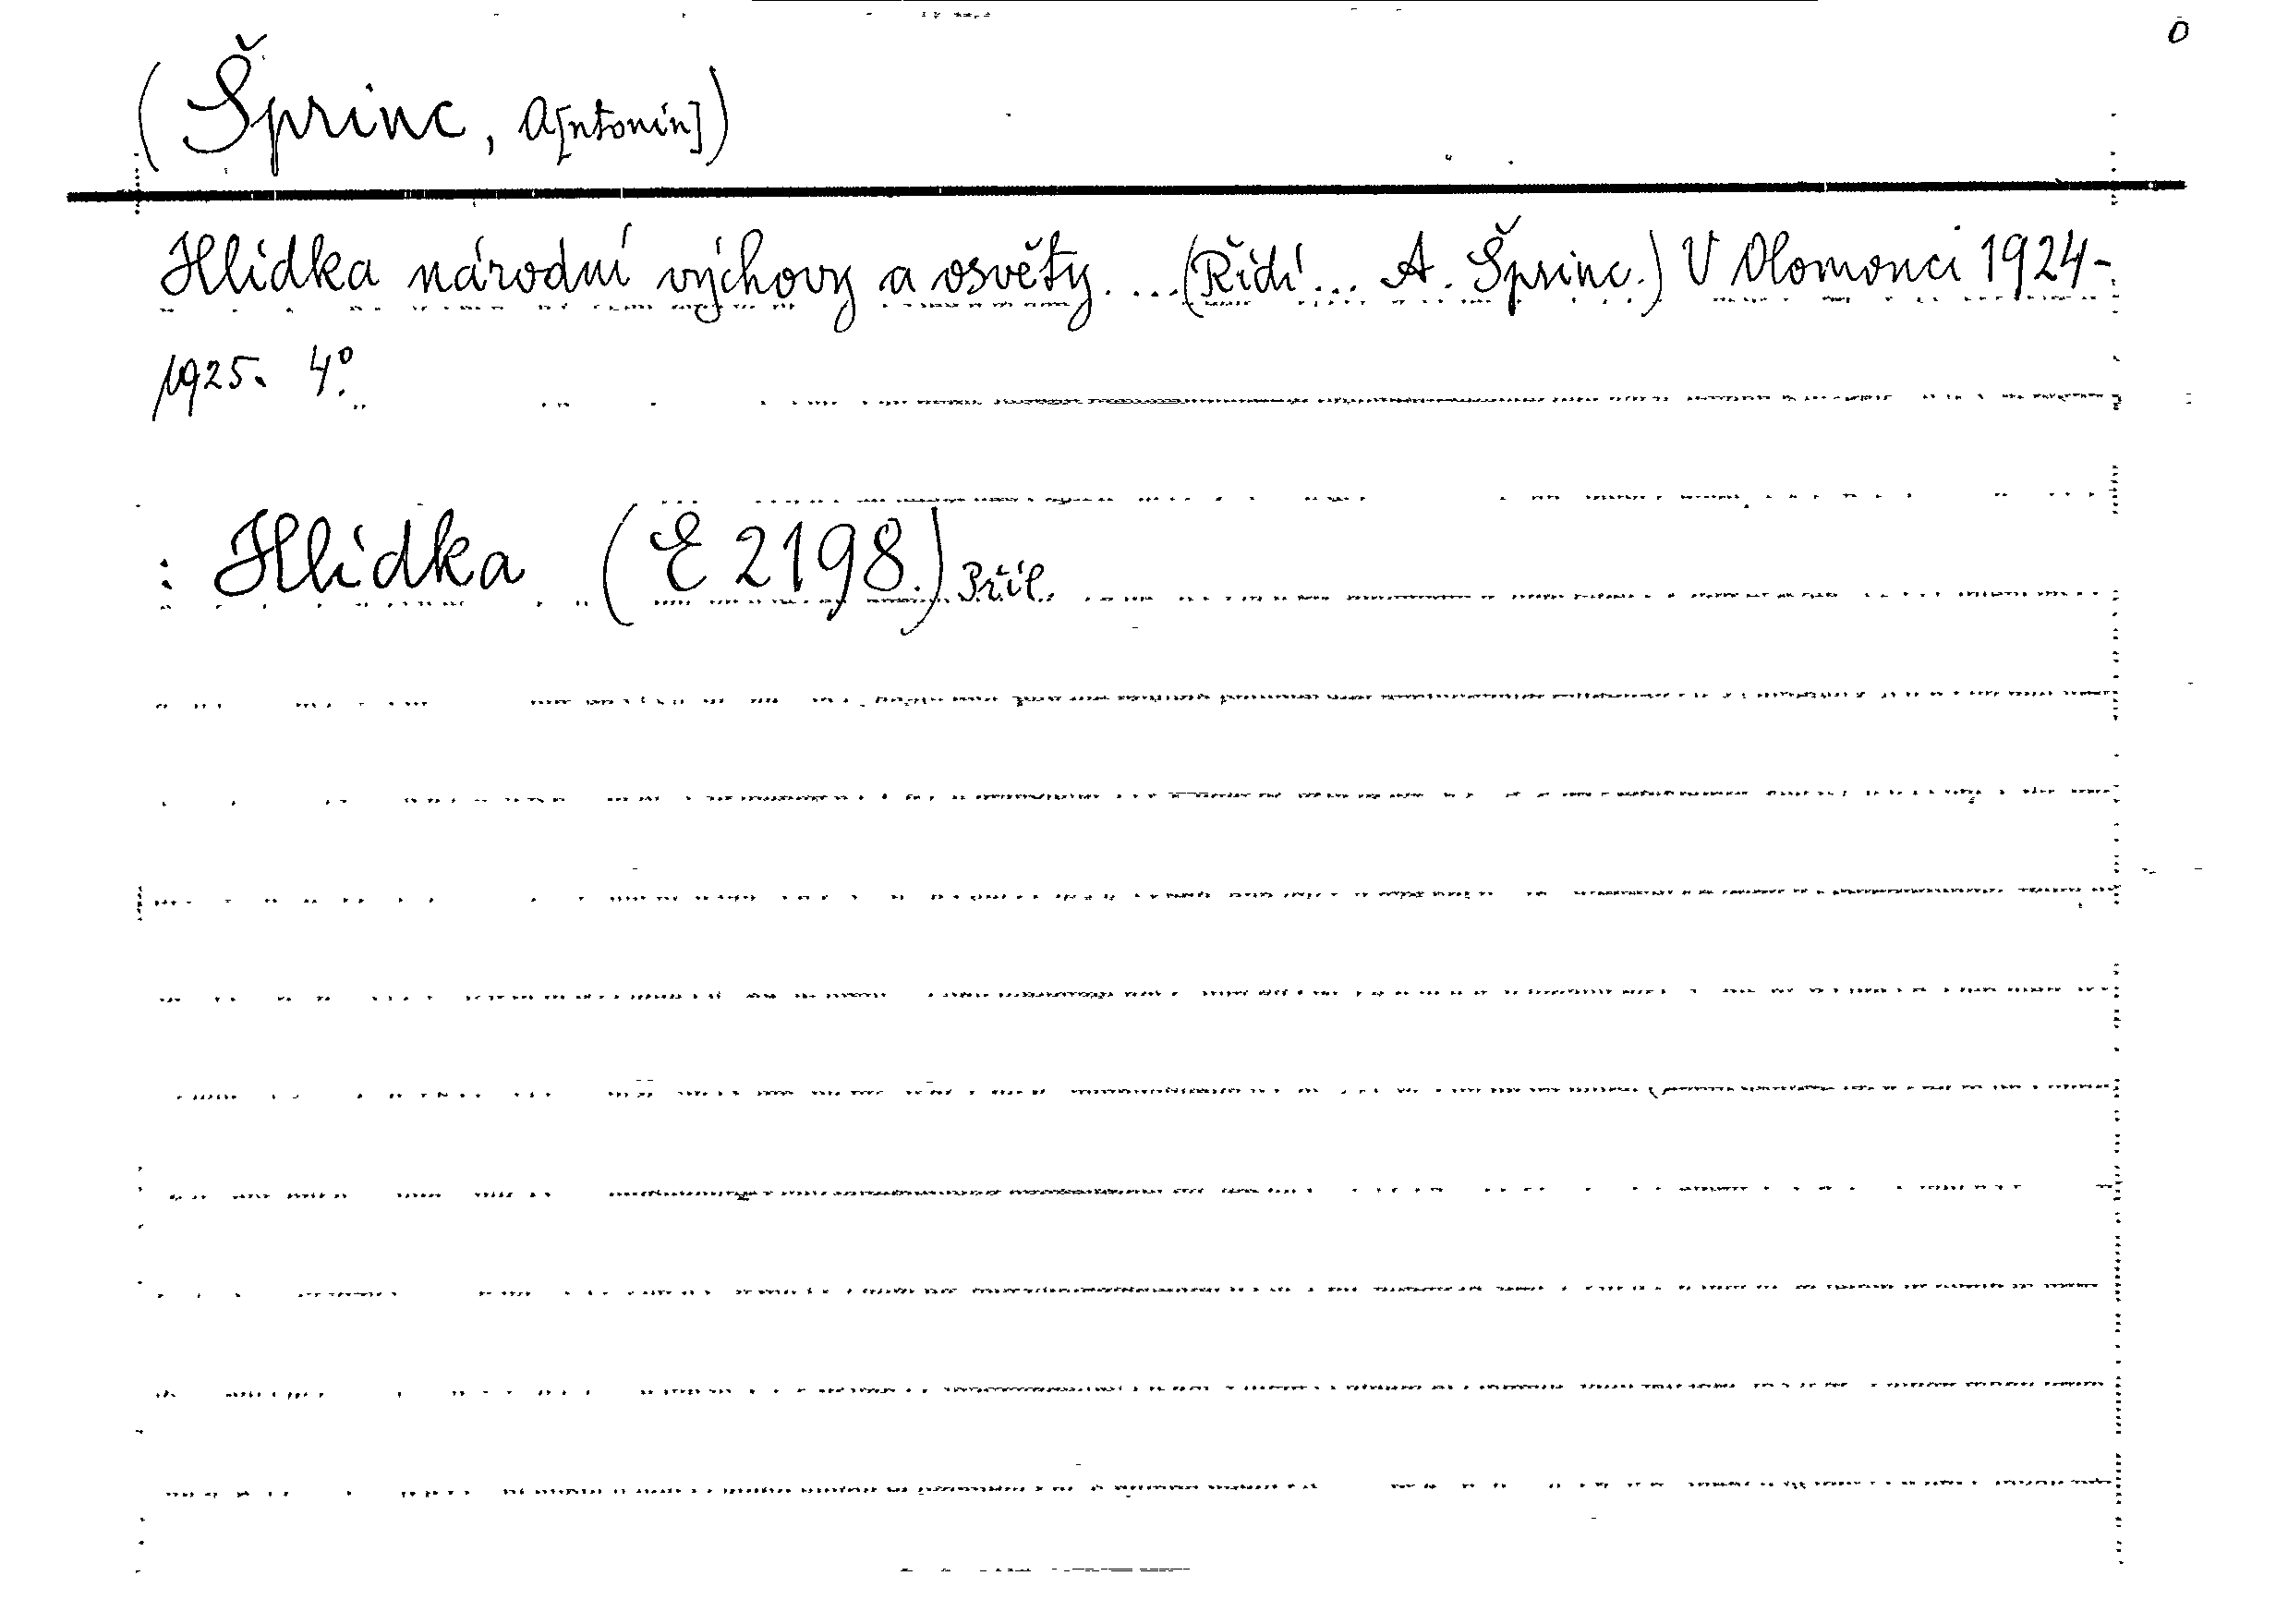 0
(Šprinc, A[ntonín])
Hlídka národní výchovy a osvěty. ...(Řídí... A. Šprinc.) V Olomouci 1924-
1925. 4°.
: Hlídka (E 2198.) Příl.